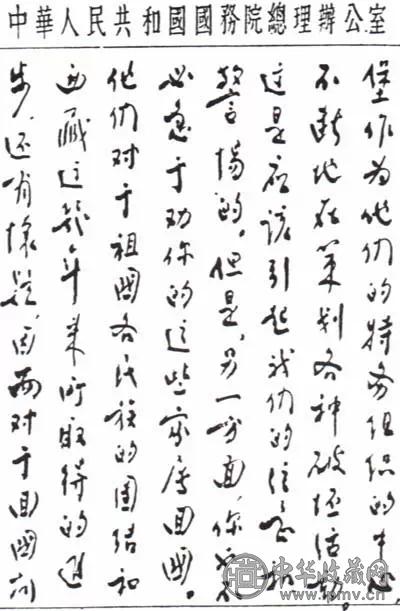 中華人民共和國國務院總理辦公室
堡作为他们的特务组织的中心,
不断地在策划各种破坏活动
這是应该引起我们的注意和
警惕的。但是,另一方面,你也不
必急于劝你的這些家属回國。
他们对于祖國各民族的团结和
西藏這几年来所取得的進
步,还有怀疑,因而对于回國问
中华收藏网